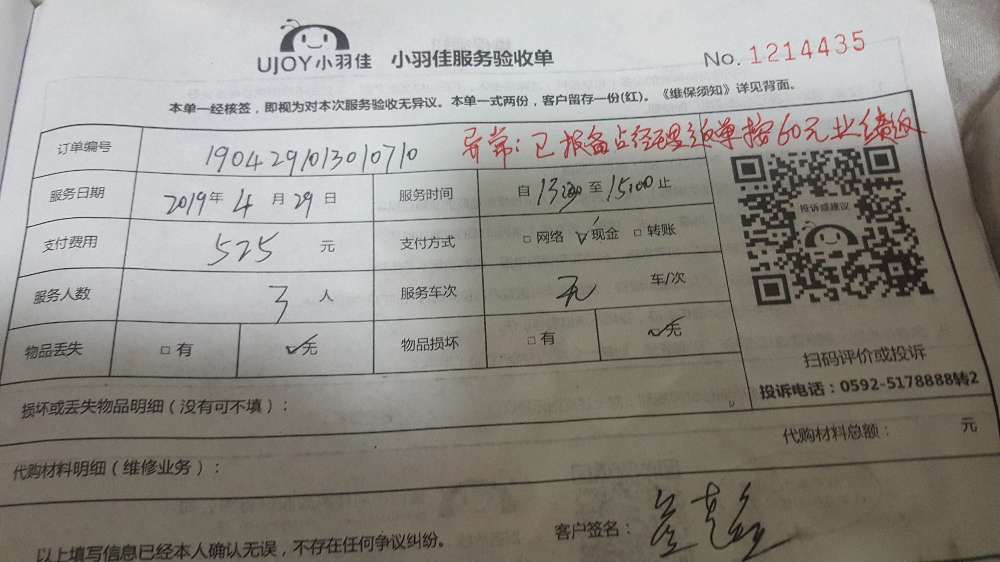 UJOY小羽佳 小羽佳服务验收单 No. 1214435
本单一经核签，即视为对本次服务验收无异议。本单一式两份，客户留存一份(红)。《维保须知》详见背面。
订单编号 1904291013010710 异常：已报备占经理返单按60元业绩
服务日期 2019年4月29日 服务时间 自13:30至15:00止
投诉或建议
支付费用 525元 支付方式 □网络 ☑现金 □转账
服务人数 3人 服务车次 无 车/次
物品丢失 □有 ☑无 物品损坏 □有 ☑无
扫码评价或投诉
投诉电话：0592-5178888转2
损坏或丢失物品明细（没有可不填）：
代购材料总额： 元
代购材料明细（维修业务）：
客户签名：
以上填写信息已经本人确认无误，不存在任何争议纠纷。